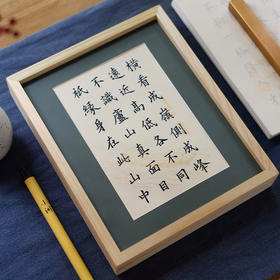 橫看成嶺側成峰
遠近高低各不同
不識廬山真面目
祇緣身在此山中